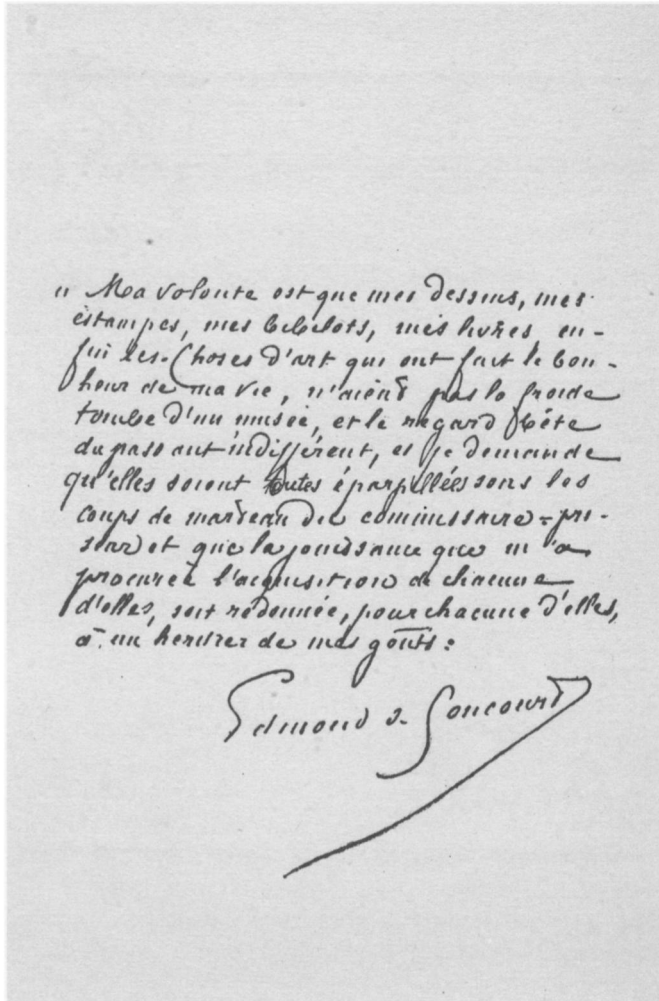 " Ma volonte est que mes dessins, mes
estampes, mes bibelots, mes livres en-
fin les choses d'art qui ont fait le bon-
heur de ma vie, n'aient pas la froide
tombe d'un musée, et le regard bête
du passant indifférent, et je demande
qu'elles soient toutes éparpillées sous les
coups de marteau du commissaire-pri-
seur et que la jouissance que m'a
procurée l'acquisition de chacune
d'elles, soit redonnée, pour chacune d'elles,
à un héritier de mes goûts :
Edmond de Goncourt